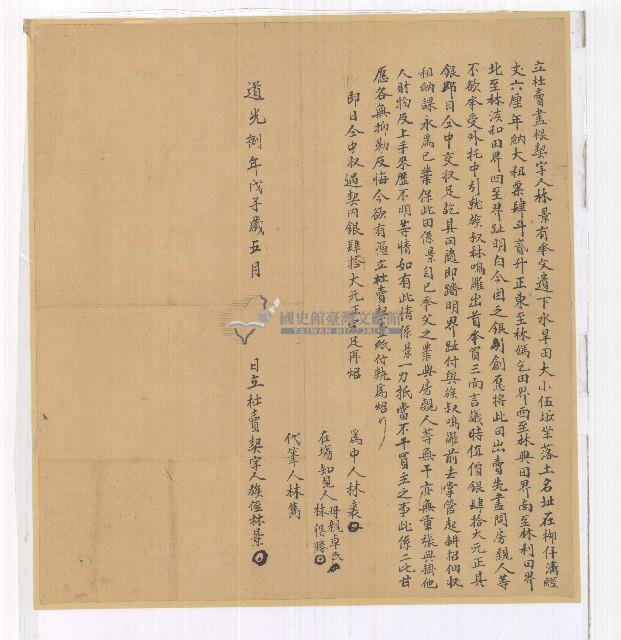 立杜賣盡根契字人林景有承父遺下水旱田大小伍坵坐落土名址在柳仔溝經
丈六厘年納大租粟肆斗貳升正東至林媽乞田界西至林興田界南至林利田界
北至林淡和田界四至界趾明白今因乏銀別創應將此田出賣先盡問房親人等
不欲承受外托中引就族叔林鳴雞出首承買三面言議時值價銀肆拾大元正其
銀即日仝中交收足訖其田隨即踏明界趾付與族叔鳴雞前去掌管起耕招佃收
租納課永為己業保此田係景自己承父之業與房親人等無干亦無重張典掛他
人財物及上手來歷不明等情如有此情係景一力抵當不干買主之事此係二比甘
愿各無抑勒反悔今欲有憑立杜賣契壹紙付執為炤
即日仝中收過契內銀肆拾大元正完足再炤
為中人林
在場知見人母親卓氏
林 勝
代筆人林
道光捌年戊子歲五月 日立杜賣契字人族侄林景
國史館臺灣文獻館
TAIWAN HISTORICA